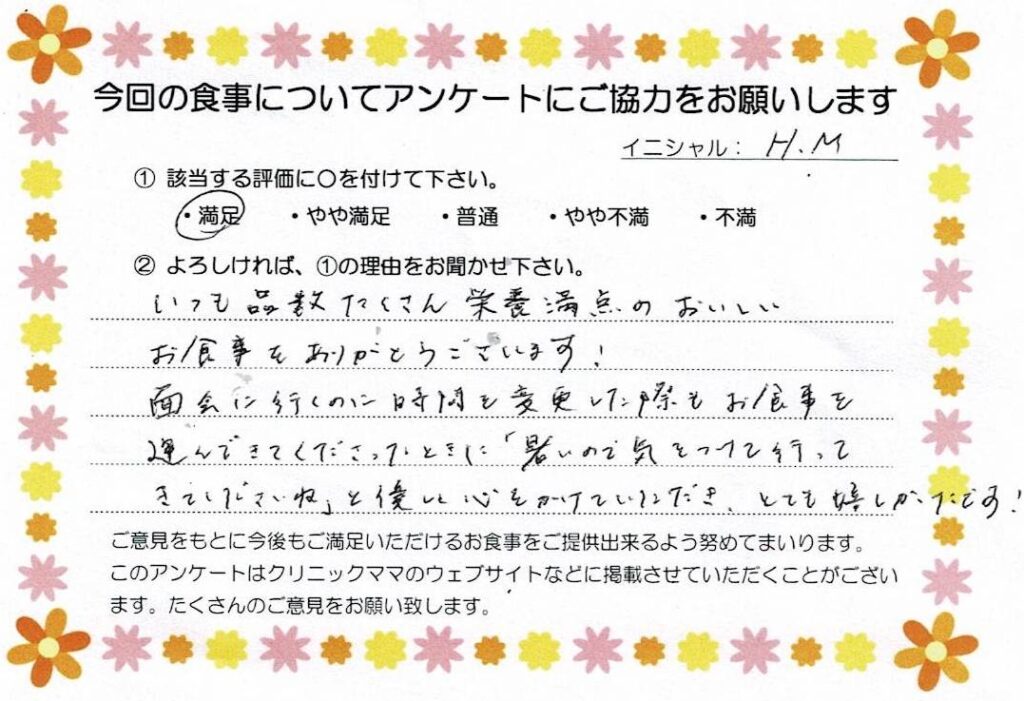 今回の食事についてアンケートにご協力をお願いします
イニシャル： H.M
① 該当する評価に〇を付けて下さい。
・満足 ・やや満足 ・普通 ・やや不満 ・不満
② よろしければ、①の理由をお聞かせ下さい。
いつも品数たくさん栄養満点のおいしい
お食事をありがとうございます！
面会に行くのに時間を変更した際もお食事を
運んできてくださったときに「暑いので気をつけて行って
きてくださいね」と優しく心をかけていただき、とても嬉しかったです！
ご意見をもとに今後もご満足いただけるお食事をご提供出来るよう努めてまいります。
このアンケートはクリニックママのウェブサイトなどに掲載させていただくことがござい
ます。たくさんのご意見をお願い致します。